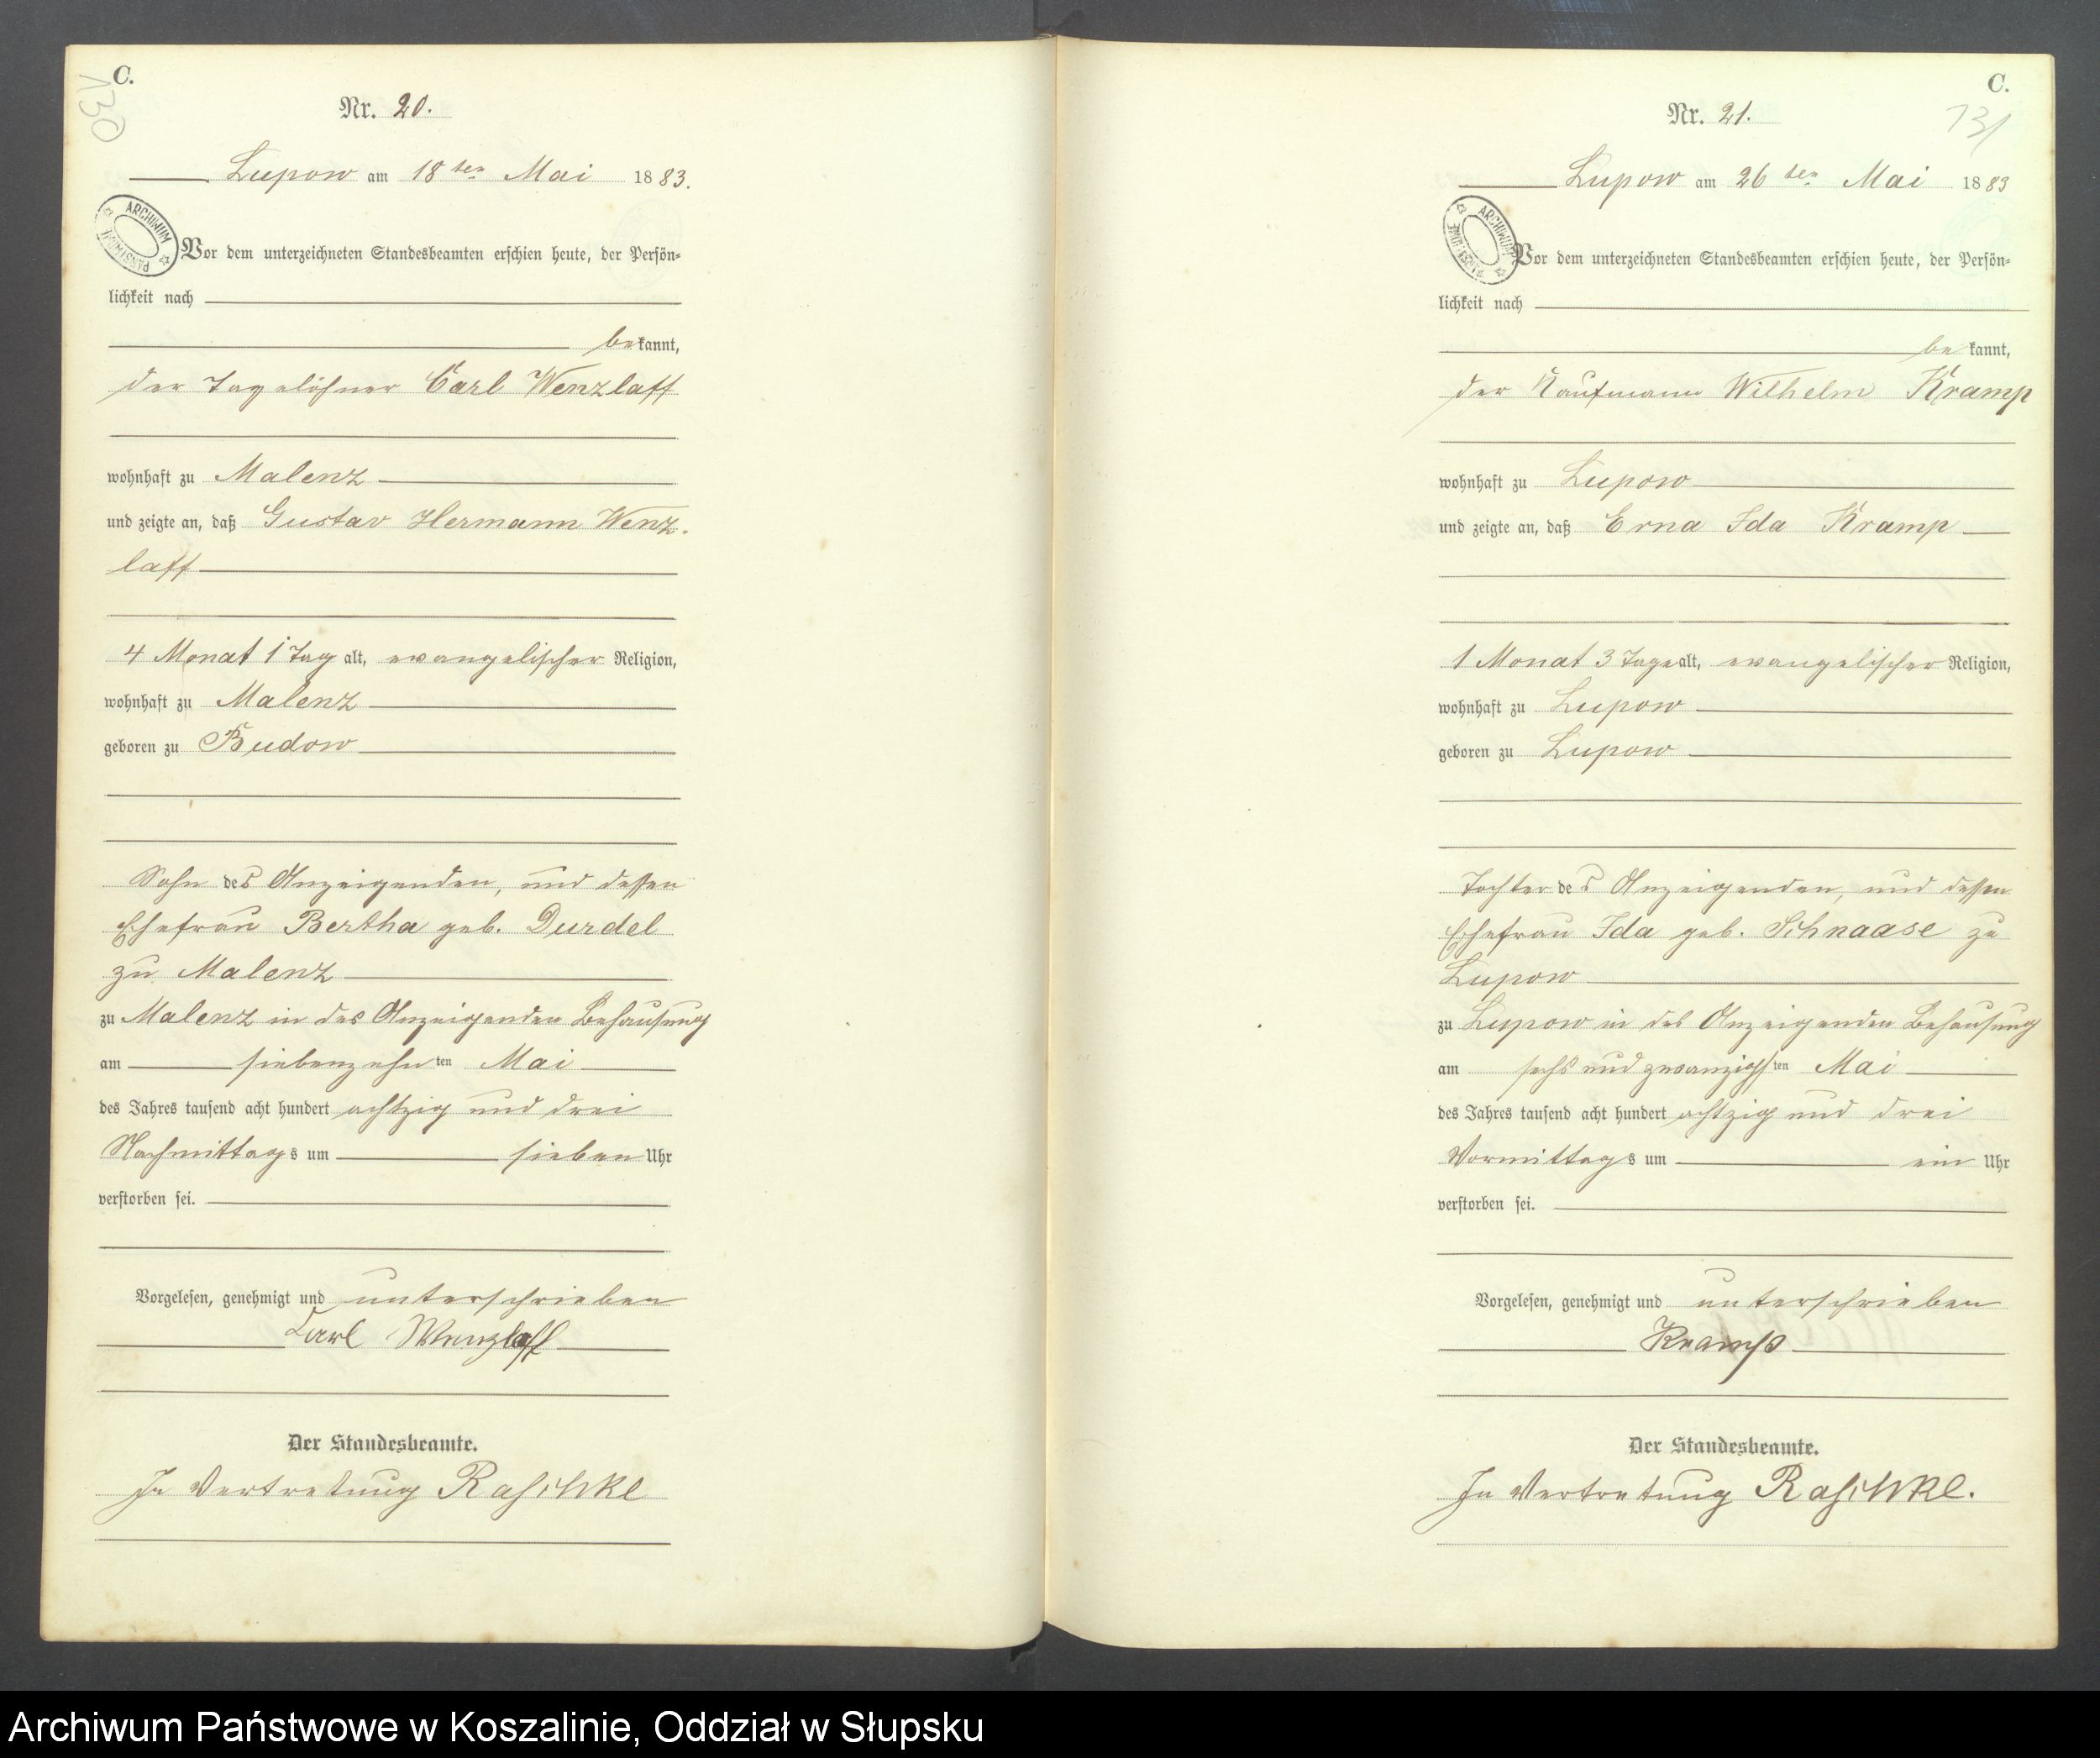 C.
130
Nr. 20.
Lupow am 18ten Mai 1883.
ARCHIWUM PAŃSTWOWE
Vor dem unterzeichneten Standesbeamten erschien heute, der Persön-
lichkeit nach
bekannt,
der Tagelöhner Carl Wenzlaff
wohnhaft zu Malenz
und zeigte an, daß Gustav Hermann Wenz-
laff
4 Monat 1 Tag alt, evangelischer Religion,
wohnhaft zu Malenz
geboren zu Budow
Sohn des Anzeigenden, und dessen
Ehefrau Bertha geb. Durdel
zu Malenz
zu Malenz in des Anzeigenden Behausung
am siebenzehnten Mai
des Jahres tausend acht hundert achtzig und drei
Nachmittags um sieben Uhr
verstorben sei.
Vorgelesen, genehmigt und unterschrieben
Carl Wenzlaff
Der Standesbeamte.
In Vertretung Raschke
C.
131
Nr. 21.
Lupow am 26ten Mai 1883
ARCHIWUM PAŃSTWOWE
Vor dem unterzeichneten Standesbeamten erschien heute, der Persön-
lichkeit nach
bekannt,
der Kaufmann Wilhelm Kramp
wohnhaft zu Lupow
und zeigte an, daß Erna Ida Kramp
1 Monat 3 Tage alt, evangelischer Religion,
wohnhaft zu Lupow
geboren zu Lupow
Tochter des Anzeigenden, und dessen
Ehefrau Ida geb. Schnaase zu
Lupow
zu Lupow in des Anzeigenden Behausung
am sechs und zwanzigsten Mai
des Jahres tausend acht hundert achtzig und drei
Vormittags um ein Uhr
verstorben sei.
Vorgelesen, genehmigt und unterschrieben
Kramp
Der Standesbeamte.
In Vertretung Raschke.
Archiwum Państwowe w Koszalinie, Oddział w Słupsku